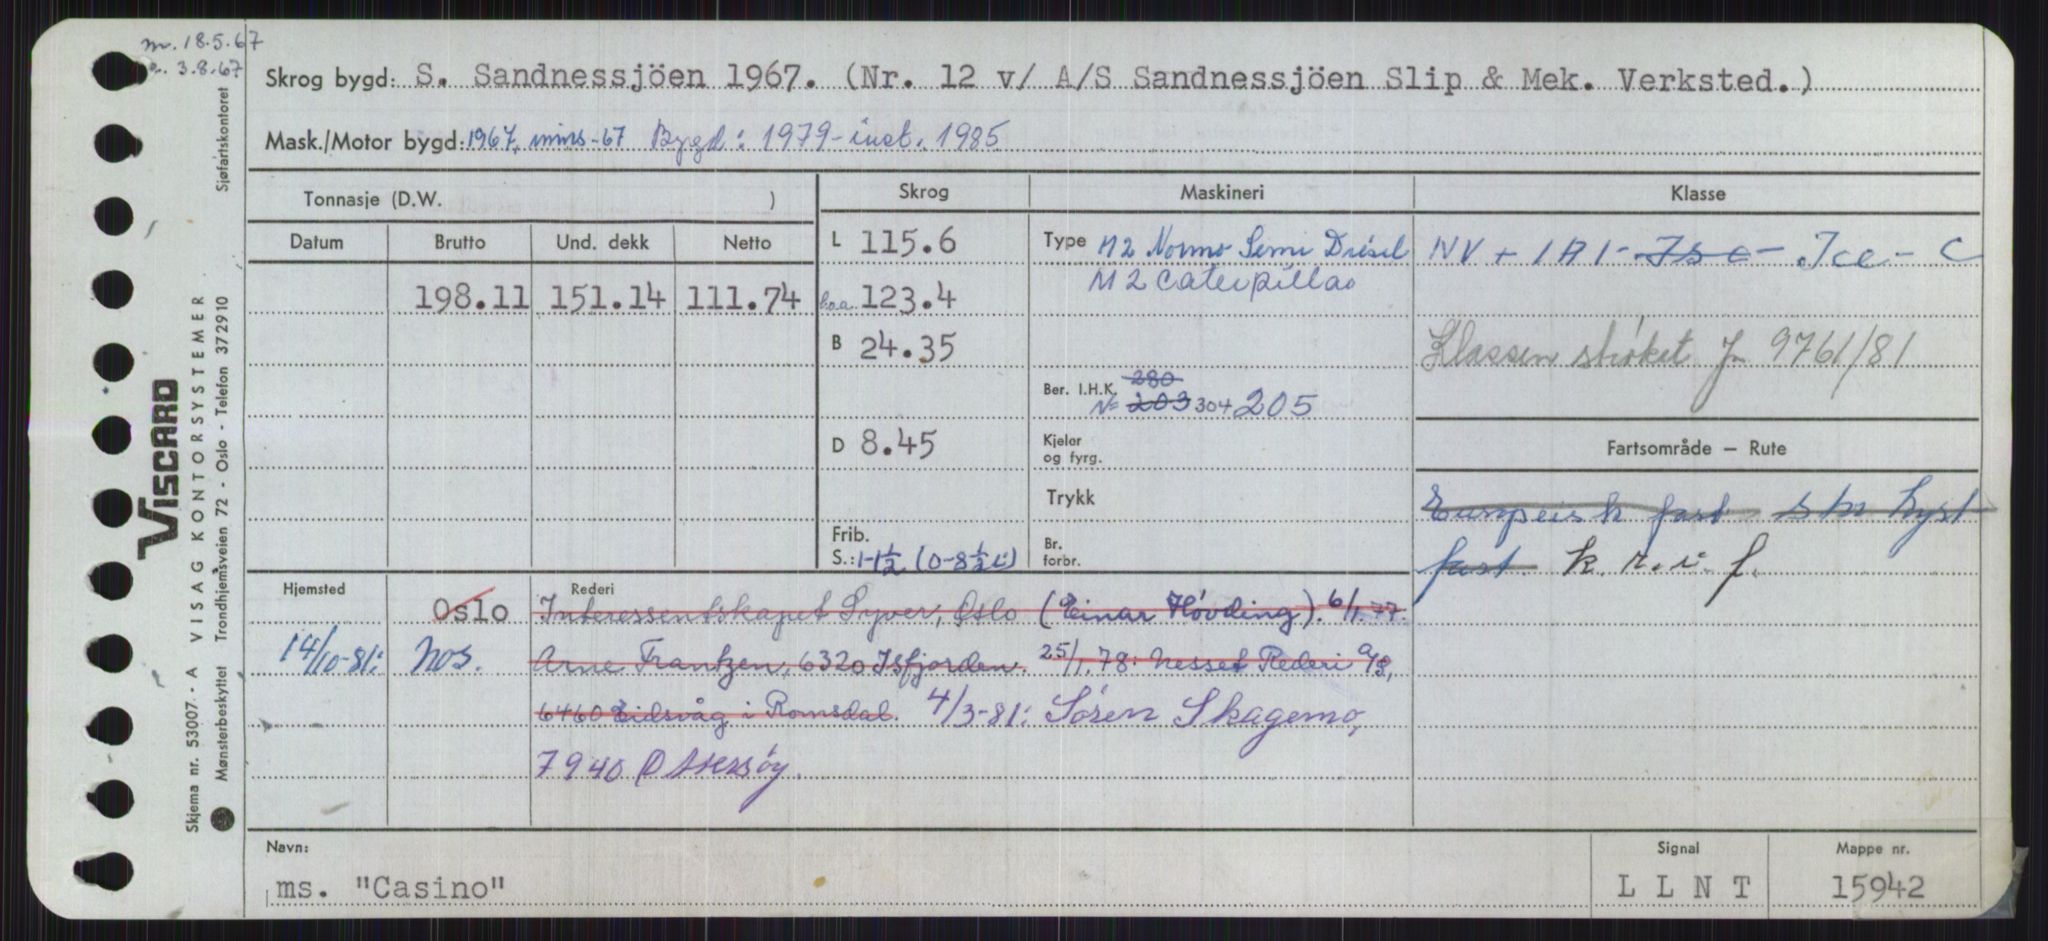 m. 18.5.67
3.8.67
Skrog bygd: S. Sandnessjöen 1967. (Nr. 12 v/ A/S Sandnessjöen Slip & Mek. Verksted.)
Mask./Motor bygd: 1967, mins-67 Bygd: 1979-inst. 1985
Tonnasje (D.W. )
Skrog
Maskineri
Klasse
Datum
Brutto
Und. dekk
Netto
198.11
151.14
111.74
L 115.6
b.o.a. 123.4
B 24.35
D 8.45
Frib.
S.: 1-1½ (0-8½ i)
Type M2 Normo Semi Diesel
M2 Caterpillar
Ber. I.H.K. 280
N= 203 304 205
Kjeler
og fyrg.
Trykk
Br.
forbr.
NV + 1A1 - Isc - Ice - C
Klassen strøket Jn 9761/81
Fartsområde — Rute
Europeisk fart stn kyst
fart. k. r. i. f.
Hjemsted
Rederi
Oslo
Interessentskapet Syver, Oslo (Einar Hövding). 6/1.77.
14/10-81: Nos.
Arne Frantzen, 6320 Isfjorden. 25/1.78: Nesset Rederi A/S,
6460 Eidsvåg i Romsdal. 4/3-81: Sören Skagemo,
7940 Ottersøy.
Navn:
ms. "Casino"
Signal
L L N T
Mappe nr.
15942
VISCARD
Skjema nr. 53007. - A VISAG KONTORSYSTEMER Sjøfartskontoret
Mønsterbeskyttet Trondhjemsveien 72 - Oslo - Telefon 372910